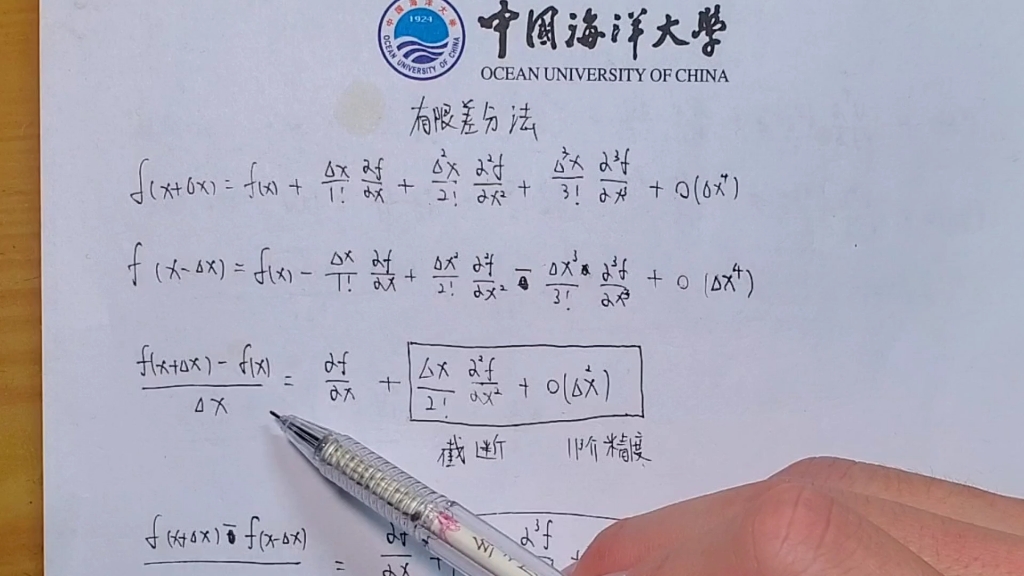 1924
中国海洋大学
OCEAN UNIVERSITY OF CHINA
中国海洋大学
OCEAN UNIVERSITY OF CHINA
有限差分法
f(x+Δx) = f(x) + Δx/1! ∂f/∂x + Δ²x/2! ∂²f/∂x² + Δ³x/3! ∂³f/∂x³ + O(Δx⁴)
f(x-Δx) = f(x) - Δx/1! ∂f/∂x + Δx²/2! ∂²f/∂x² - Δx³/3! ∂³f/∂x³ + O(Δx⁴)
f(x+Δx) - f(x)/Δx = ∂f/∂x + Δx/2! ∂²f/∂x² + O(Δ²x)
截断 1阶精度
f(x+Δx) - f(x-Δx) = ∂f/∂x + ∂³f